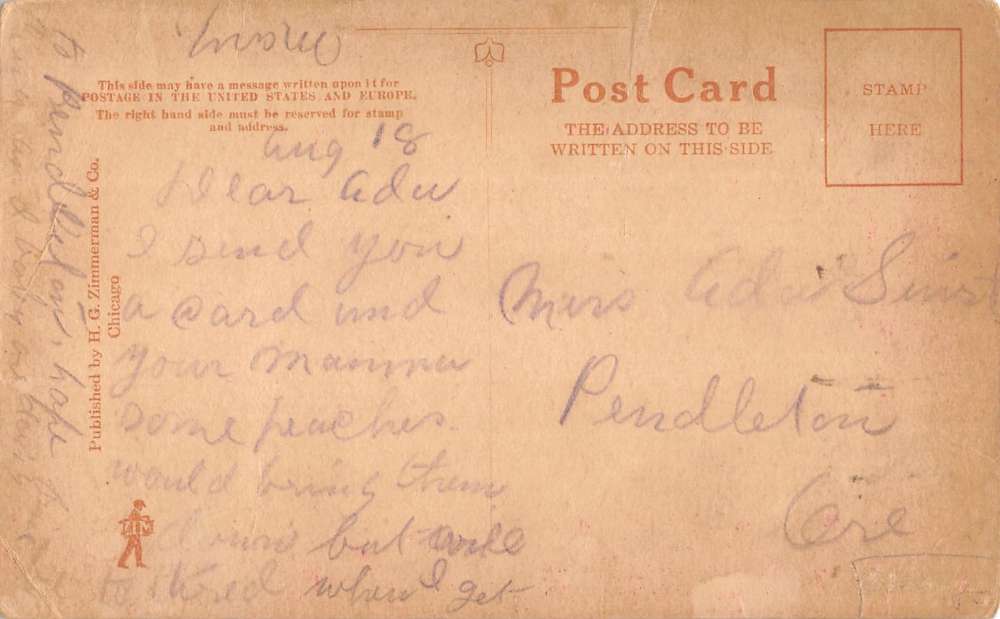 This side may have a message written upon it for
POSTAGE IN THE UNITED STATES AND EUROPE.
The right hand side must be reserved for stamp
and address.
Post Card
THE ADDRESS TO BE
WRITTEN ON THIS SIDE
STAMP
HERE
Published by H. G. Zimmerman & Co.
Chicago
ZIM
Aug 18
Dear Ada
I send you
a card and
your Mamma
some peaches.
would bring them
down but will
to tired when I get
to Pendleton, hope
Miss Ada Sims
Pendleton
Ore